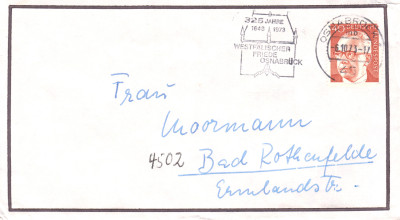 325 JAHRE
1648 1973
WESTFÄLISCHER
FRIEDE
OSNABRÜCK
OSNABRÜCK
-6.10.73-17
Frau
Moormann
4502 Bad Rothenfelde
Ermlandstr.